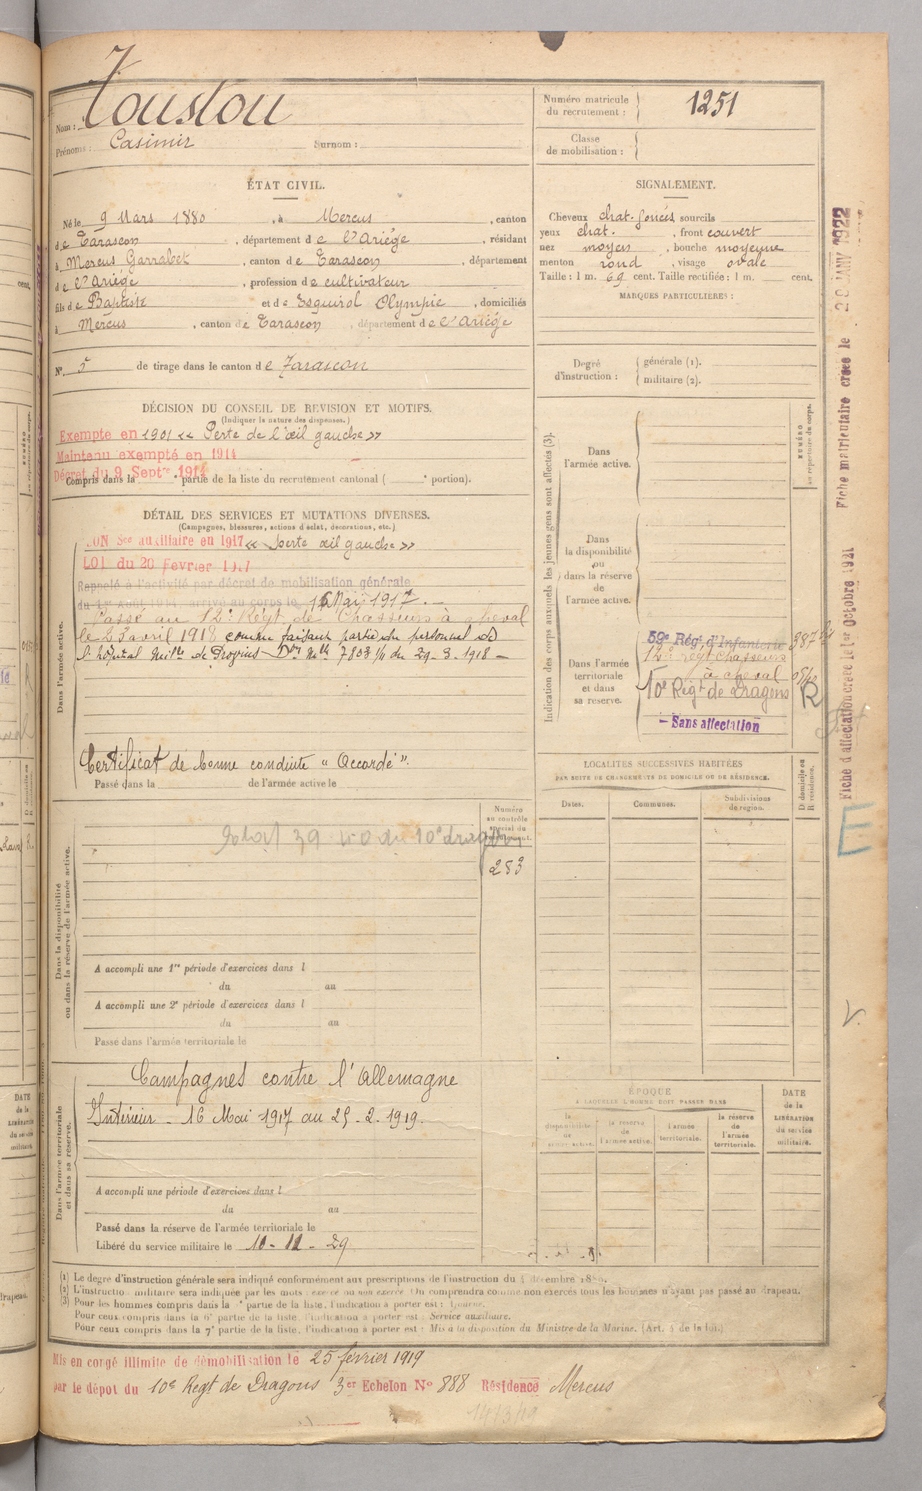 Nom : Toustou
Prénoms : Casimir Surnom :
Numéro matricule
du recrutement : 1251
Classe
de mobilisation :
ÉTAT CIVIL.
Né le 9 Mars 1880, à Mercus, canton
de Tarascon, département de l'Ariège, résidant
à Mercus Garrabet, canton de Tarascon, département
de l'Ariège, profession de cultivateur
fils de Baptiste et de Esquirol Olympie, domiciliés
à Mercus, canton de Tarascon, département de l'Ariège
N° 5 de tirage dans le canton de Tarascon
SIGNALEMENT.
Cheveux chat. foncés sourcils
yeux chat., front couvert
nez moyen, bouche moyenne
menton rond, visage ovale
Taille : 1 m. 69 cent. Taille rectifiée : 1 m. cent.
MARQUES PARTICULIÈRES :
Degré
d'instruction :
générale (1).
militaire (2).
DÉCISION DU CONSEIL DE REVISION ET MOTIFS.
(Indiquer la nature des dispenses.)
Exempté en 1901 « Perte de l'œil gauche »
Maintenu exempté en 1914
Décret du 9 Septre 1914
Compris dans la e partie de la liste du recrutement cantonal ( e portion).
DÉTAIL DES SERVICES ET MUTATIONS DIVERSES.
(Campagnes, blessures, actions d'éclat, décorations, etc.)
BON Sce auxiliaire en 1917 « perte œil gauche »
LOI du 20 Février 1917
Rappelé à l'activité par décret de mobilisation générale
du 1er Août 1914 arrivé au corps le 16 Mai 1917.
Passé au 12e Régt de Chasseurs à cheval
le 25 avril 1918 comme faisant partie du personnel de
l'hôpital milre de Dmon Mle 7803 1/11 du 29-3-1918 -
Certificat de bonne conduite "Accordé".
Passé dans la de l'armée active le
Dans l'armée active.
Indication des corps auxquels les jeunes gens sont affectés (3).
Dans
l'armée active.
Dans
la disponibilité
ou
dans la réserve
de
l'armée active.
Dans l'armée
territoriale
et dans
sa reserve.
59e Régt d'Infanterie
12e régt Chasseurs
à cheval
10e Régt de Dragons R
- Sans affectation
NUMÉRO
au répertoire du corps.
LOCALITÉS SUCCESSIVES HABITÉES
PAR SUITE DE CHANGEMENTS DE DOMICILE OU DE RÉSIDENCE.
Dates.
Communes.
Subdivisions
de région.
D. domicile ou
R. résidence.
Numéro
au contrôle
spécial du
recrutement.
283
39 du 10e dragons
Dans la disponibilité
ou dans la réserve de l'armée active.
A accompli une 1re période d'exercices dans l
du au
A accompli une 2e période d'exercices dans l
du au
Passé dans l'armée territoriale le
Campagnes contre l'Allemagne
Intérieur - 16 Mai 1917 au 25-2-1919.
Dans l'armée territoriale
et dans sa réserve.
A accompli une période d'exercices dans l
du au
Passé dans la réserve de l'armée territoriale le
Libéré du service militaire le 10-11-29
ÉPOQUE
A LAQUELLE L'HOMME DOIT PASSER DANS
la
disponibilité
de
l'armée active.
la réserve
de
l'armée active.
l'armée
territoriale.
la réserve
de
l'armée
territoriale.
DATE
de la
LIBÉRATION
du service
militaire.
(1) Le degré d'instruction générale sera indiqué conformément aux prescriptions de l'instruction du 4 décembre
(2) L'instruction militaire sera indiquée par les mots : exercé ou non exercé. On comprendra comme non exercés tous les hommes n'ayant pas passé au drapeau.
(3) Pour les hommes compris dans la e partie de la liste, l'indication à porter est :
Pour ceux compris dans la 6e partie de la liste, l'indication à porter est : Service auxiliaire.
Pour ceux compris dans la 7e partie de la liste, l'indication à porter est : Mis à la disposition du Ministre de la Marine. (Art. 4 de la loi.)
Mis en congé illimité de démobilisation le 25 février 1919
par le dépôt du 10e Regt de Dragons 3er Echelon N° 888 Résidence Mercus
Fiche d'affectation créée le 1er Octobre 1921 Fiche matriculaire créée le 20 JANV 1922
E
V